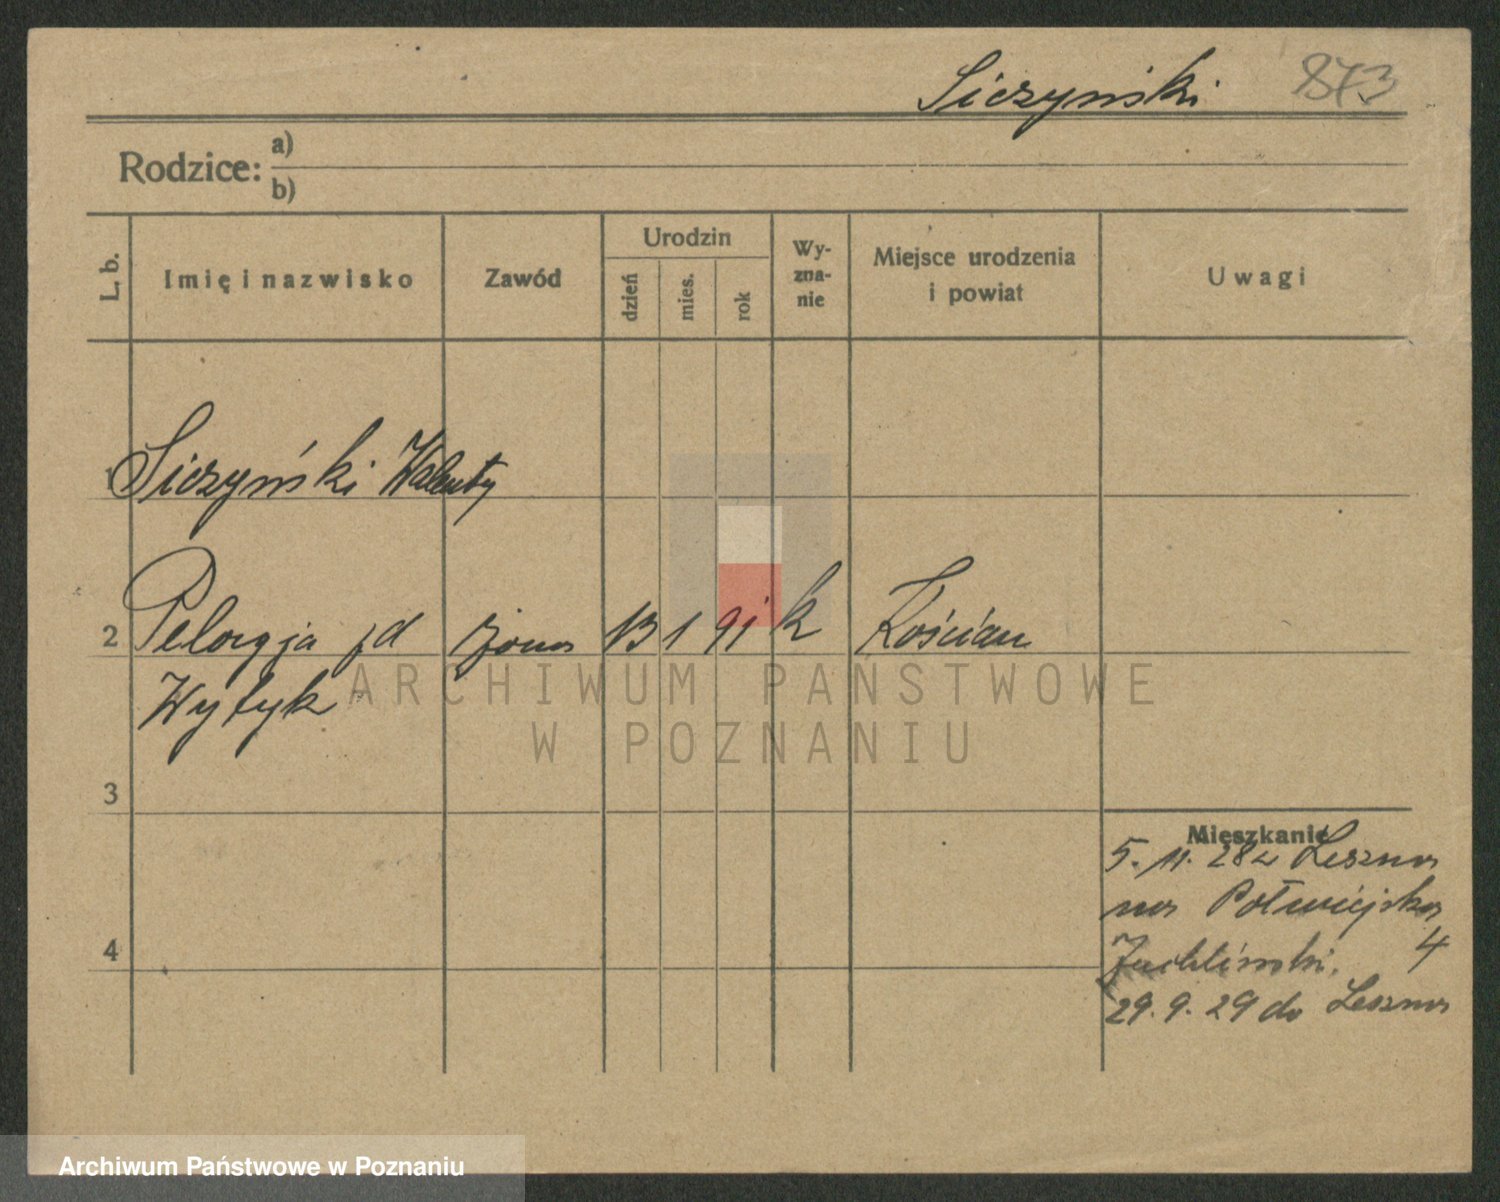 Siczyński 873
Rodzice: a)
b)
L. b. Imię i nazwisko Zawód Urodzin dzień mies. rok Wy-zna-nie Miejsce urodzenia i powiat Uwagi
1 Siczyński Walenty
2 Pelagja żona 13 1 91 k Kościan
Wytyk
ARCHIWUM PAŃSTWOWE
W POZNANIU
3
Mieszkanie
5. 11. 28 z Leszna
na Półwiejską
4
4
29. 9. 29 do Leszna
Archiwum Państwowe w Poznaniu